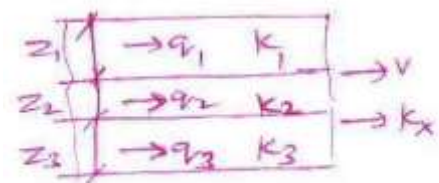 Z₁ → q₁ K₁
→ v
Z₂ → q₂ K₂
→ Kₓ
Z₃ → q₃ K₃